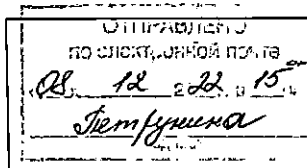 ОТПРАВЛЕНО
по электронной почте
08. 12 2022. в 15 00
Петрунина